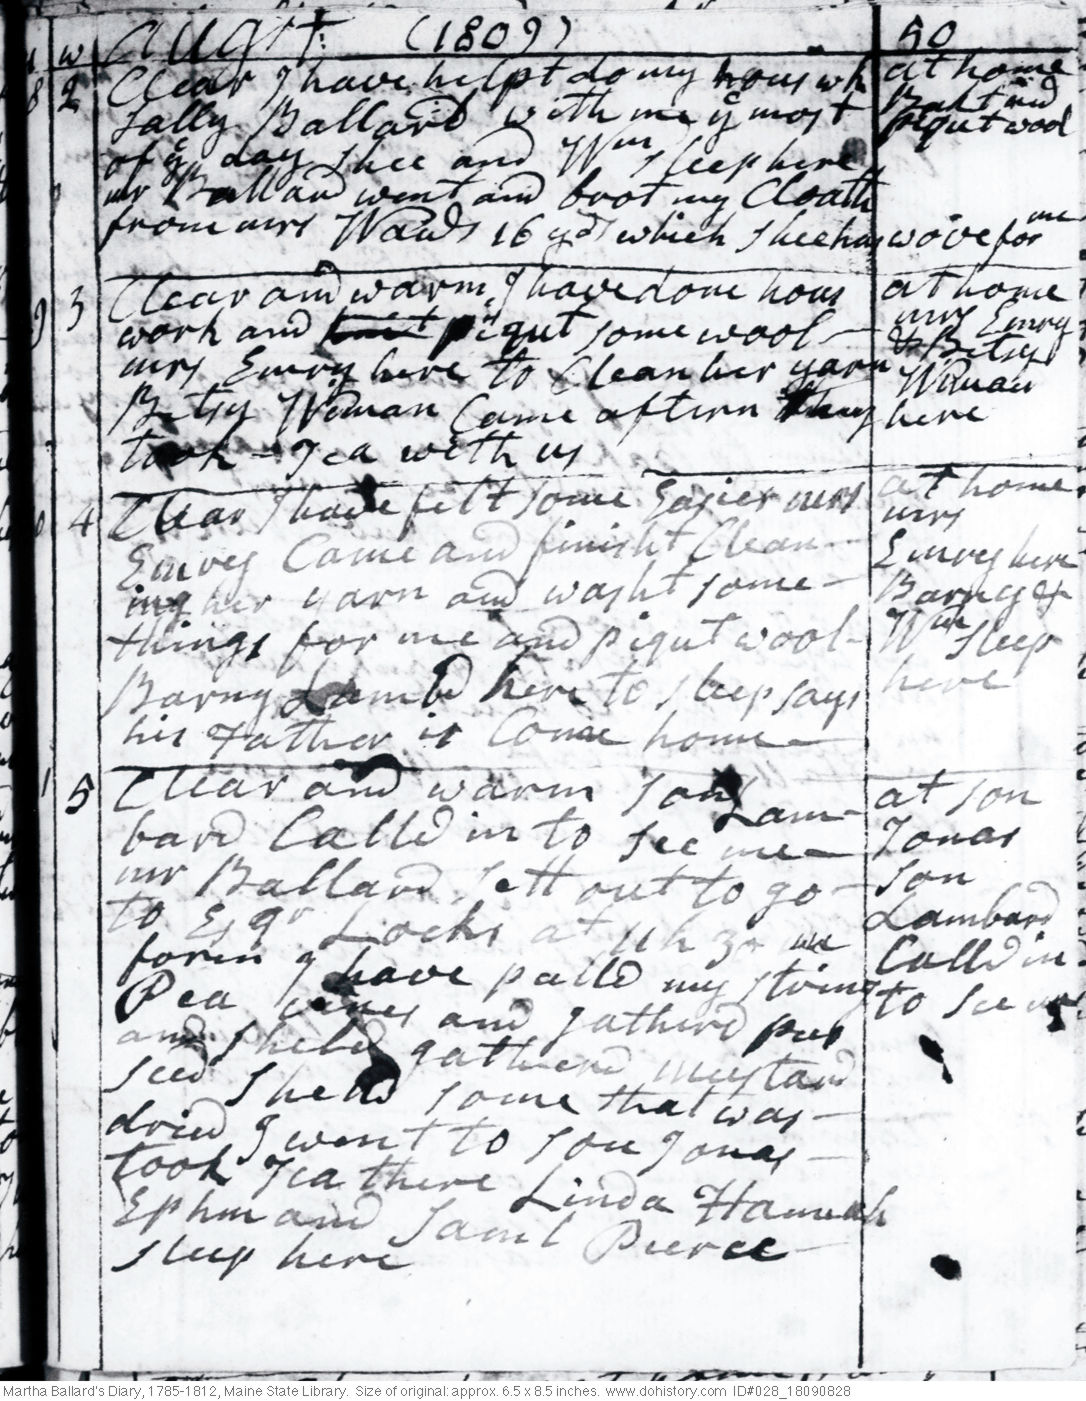 w Augt: (1809) 50
8 2 Clear I have helpt do my hous wk at home
Sally Ballard with me ye most
of ye day Shee and Wm Sleep here piqut wool
mr Ballard went and brot my Cloath
from mrs Wards 16 yds which Shee has wove for me
9 3 Clear and warm, I have done hous at home
work and piqut some wool mrs Emry
mrs Emry here to Clean her yarn & Betsy
Betsy Wiman Came aftern they Wiman
took Tea with us here
0 4 Clear I have felt some Easier mrs at home
Emrey Came and finisht Clean- mrs
ing her yarn and washt some Emrey here
things for me and piqut wool Barny &
Barny Lambd here to sleep says Wm Sleep
his Father is Come home here
1 5 Clear and warm son Lam- at son
bard Calld in to see me Jonas
mr Ballard sett out to go son
to Esqr Locks at 11h 30 m Lambard
forin I have palld my string Calld in
Pea vines and gatherd pees to see me
and sheld gatherd mustard
seed sheld some that was
dried I went to son Jonas
took Tea there Linda Hannah
Ephm and Saml Pierce
sleep here
Martha Ballard's Diary, 1785-1812, Maine State Library. Size of original: approx. 6.5 x 8.5 inches. www.dohistory.com ID#028_18090828